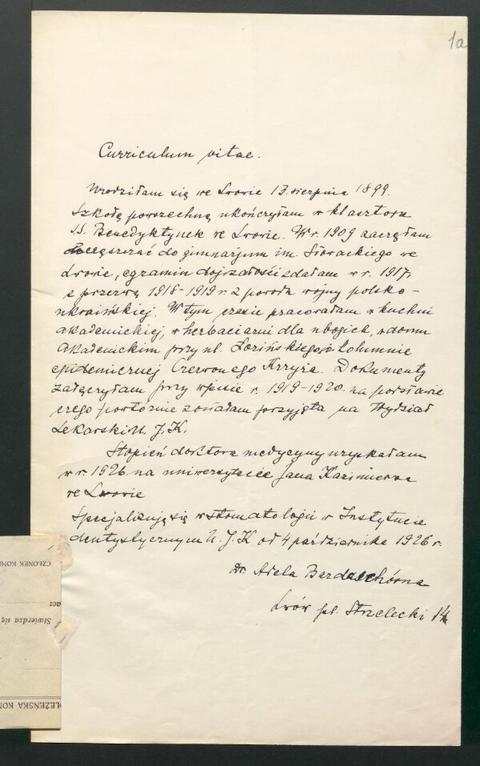 1a
Curriculum vitae.
Urodziłam się we Lwowie 13 sierpnia 1899.
Szkołę powszechną ukończyłam w klasztorze
SS. Benedyktynek we Lwowie. W r. 1909 zaczęłam
uczęszczać do gimnazjum im. Słowackiego we
Lwowie, egzamin dojrzałości zdałam w r. 1917,
z przerwą 1918-1919 r. z powodu wojny polsko-
ukraińskiej. W tym czasie pracowałam w kuchni
akademickiej, w herbaciarni dla ubogich, w domu
Akademickim przy ul. Łozińskiego i w kolumnie
epidemicznej Czerwonego Krzyża. Dokumenty
załączyłam przy wpisie r. 1919-1920. na podstawie
czego ponownie zostałam przyjęta na Wydział
Lekarski U. J. K.
Stopień doktora medycyny uzyskałam
w r. 1926 na uniwersytecie Jana Kazimierza
we Lwowie
Specjalizuję się w stomatologii w Instytucie
dentystycznym U. J. K od 4 października 1926 r.
Dr. Adela
Lwów pl. Strzelecki
CZŁONEK KOM
acz
Stwierdza się
LEŻEŃSKA KOM